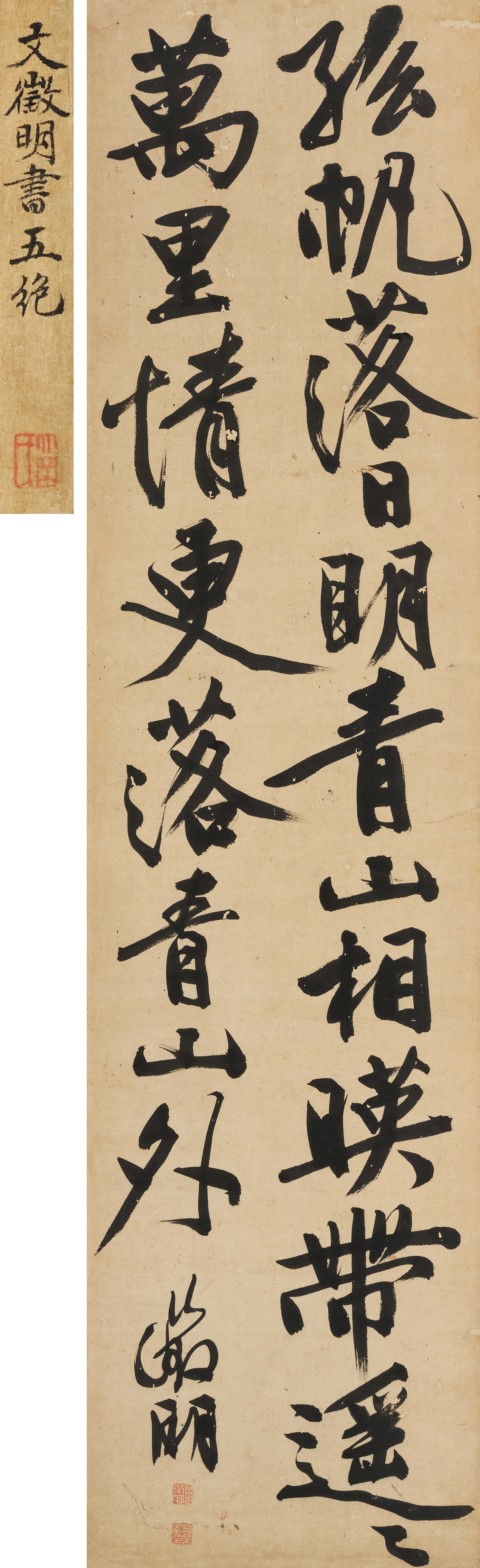 孤帆落日明青山相暎帶遥々
萬里情更落青山外
徵明
文徵明書五絶